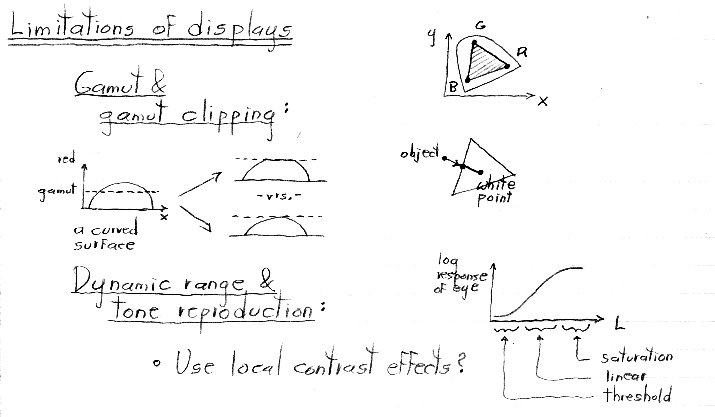 Limitations of displays
Gamut &
gamut clipping:
y
G
R
B
x
red
gamut
x
a curved
surface
-vrs.-
object
white
point
Dynamic range &
tone reproduction:
• Use local contrast effects?
log
response
of eye
L
saturation
linear
threshold